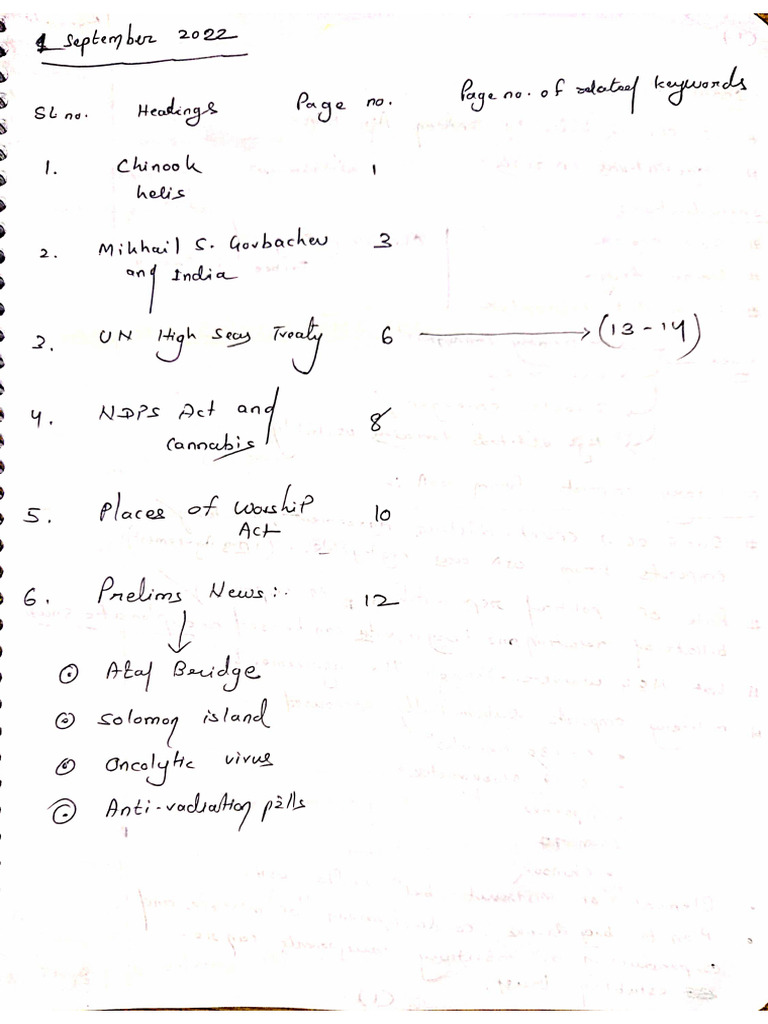 1 September 2022
Sl no. Headings Page no. Page no. of related keywords
1. Chinook 1
helis
2. Mikhail S. Gorbachev 3
and India
3. UN High Seas Treaty 6 → (13-14)
4. NDPS Act and 8
Cannabis
5. Places of Worship 10
Act
6. Prelims News:. 12
Atal Bridge
Solomon island
Oncolytic virus
Anti-radiation pills